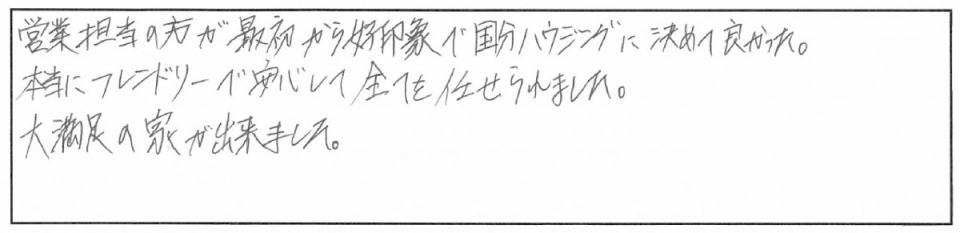 営業担当の方が最初から好印象で国分ハウジングに決めて良かった。
本当にフレンドリーで安心して全てを任せられました。
大満足の家が出来ました。